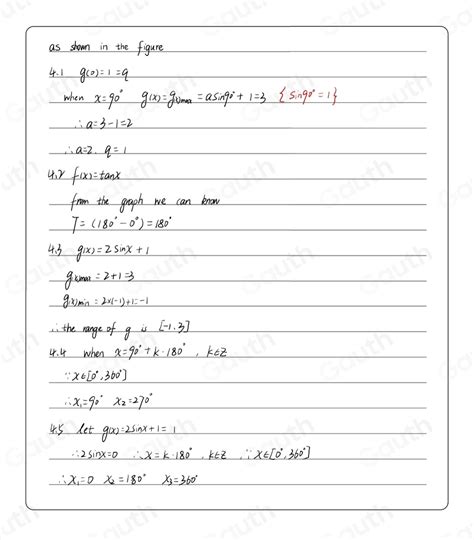 as shown in the figure
4.1 g(0)=1=q
when x=90° g(x)=g(x)max=asin90°+1=3 {sin90°=1}
∴a=3-1=2
∴a=2. q=1
4.2 f(x)=tanx
from the graph we can know
T=(180°-0°)=180°
4.3 g(x)=2sinx+1
g(x)max=2+1=3
g(x)min=2×(-1)+1=-1
∴the range of g is [-1.3]
4.4 when x=90°+k·180°, k∈Z
∵x∈[0°,360°]
∴x₁=90° x₂=270°
4.5 let g(x)=2sinx+1=1
∴2sinx=0 ∴x=k·180°, k∈Z, ∵x∈[0°,360°]
∴x₁=0 x₂=180° x₃=360°
Gauth